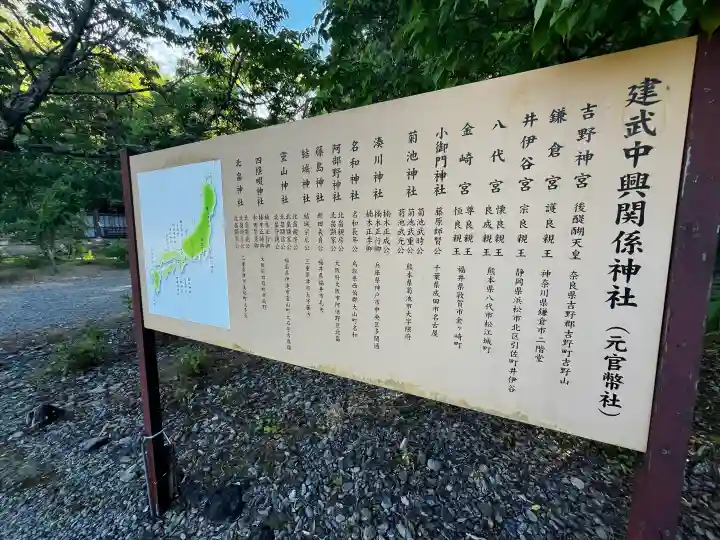 建武中興関係神社（元官幣社）
吉野神宮 後醍醐天皇 奈良県吉野郡吉野町吉野山
鎌倉宮 護良親王 神奈川県鎌倉市二階堂
井伊谷宮 宗良親王 静岡県浜松市北区引佐町井伊谷
八代宮 懐良親王 良成親王 熊本県八代市松江城町
金崎宮 尊良親王 恒良親王 福井県敦賀市金ヶ崎町
小御門神社 藤原師賢公 千葉県成田市名古屋
菊池神社 菊池武時公 菊池武重公 菊池武光公 熊本県菊池市大字隈府
湊川神社 楠木正成公 楠木正行卿 楠木正季卿 兵庫県神戸市中央区多聞通
名和神社 名和長年公 鳥取県西伯郡大山町名和
阿部野神社 北畠親房公 北畠顕家公 大阪府大阪市阿倍野区北畠
藤島神社 新田義貞公 福井県福井市毛矢
結城神社 結城宗広公 三重県津市大字藤方
霊山神社 北畠親房公 北畠顕家公 北畠顕信公 北畠守親公 福島県伊達市霊山町大石
四條畷神社 楠木正行卿 大阪府四條畷市南野
北畠神社 北畠顕能公 北畠親房公 北畠顕家公 三重県津市美杉町上多気